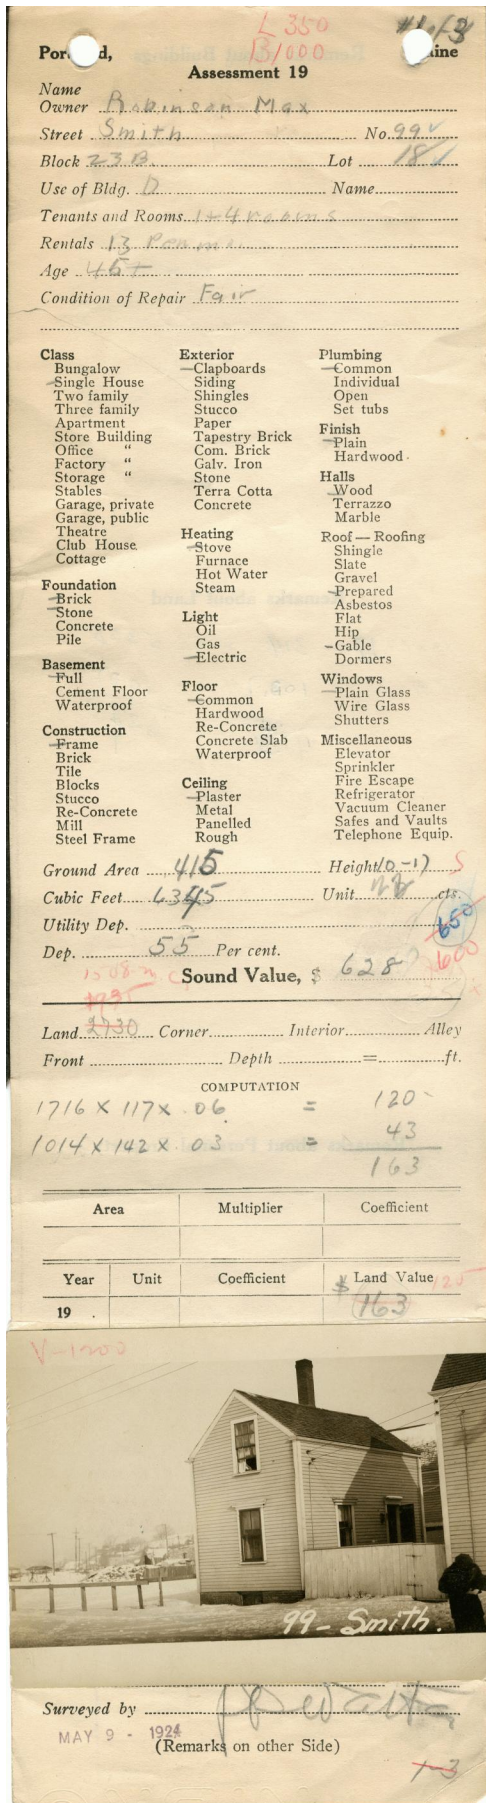 L 350
B1000
Portland, Maine
Assessment 19
Name
Owner Robinson Max
Street Smith No. 99
Block 23B Lot 18
Use of Bldg. D Name
Tenants and Rooms 1 + 4 rooms
Rentals 13 Per m
Age 45+
Condition of Repair Fair
Class
Bungalow
Single House
Two family
Three family
Apartment
Store Building
Office "
Factory "
Storage "
Stables
Garage, private
Garage, public
Theatre
Club House
Cottage
Foundation
Brick
Stone
Concrete
Pile
Basement
Full
Cement Floor
Waterproof
Construction
Frame
Brick
Tile
Blocks
Stucco
Re-Concrete
Mill
Steel Frame
Exterior
Clapboards
Siding
Shingles
Stucco
Paper
Tapestry Brick
Com. Brick
Galv. Iron
Stone
Terra Cotta
Concrete
Heating
Stove
Furnace
Hot Water
Steam
Light
Oil
Gas
Electric
Floor
Common
Hardwood
Re-Concrete
Concrete Slab
Waterproof
Ceiling
Plaster
Metal
Panelled
Rough
Plumbing
Common
Individual
Open
Set tubs
Finish
Plain
Hardwood
Halls
Wood
Terrazzo
Marble
Roof — Roofing
Shingle
Slate
Gravel
Prepared
Asbestos
Flat
Hip
Gable
Dormers
Windows
Plain Glass
Wire Glass
Shutters
Miscellaneous
Elevator
Sprinkler
Fire Escape
Refrigerator
Vacuum Cleaner
Safes and Vaults
Telephone Equip.
Ground Area 415 Height 10-17
Cubic Feet 6345 Unit 22 cts.
Utility Dep. 650
Dep. 55 Per cent. 600
Sound Value, $ 628
Land 2730 Corner Interior Alley
Front Depth = ft.
COMPUTATION
1716 X 117 X .06 = 120
1014 X 142 X .03 = 43
163
Area Multiplier Coefficient
Year Unit Coefficient Land Value 125
19 $ 163
V-1200
99 - Smith.
Surveyed by
MAY 9 - 1924
(Remarks on other Side)
1-3